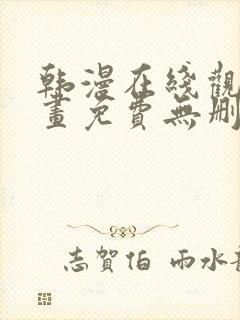 韩漫在线觀
畫免費無刪
志賀伯 雨水